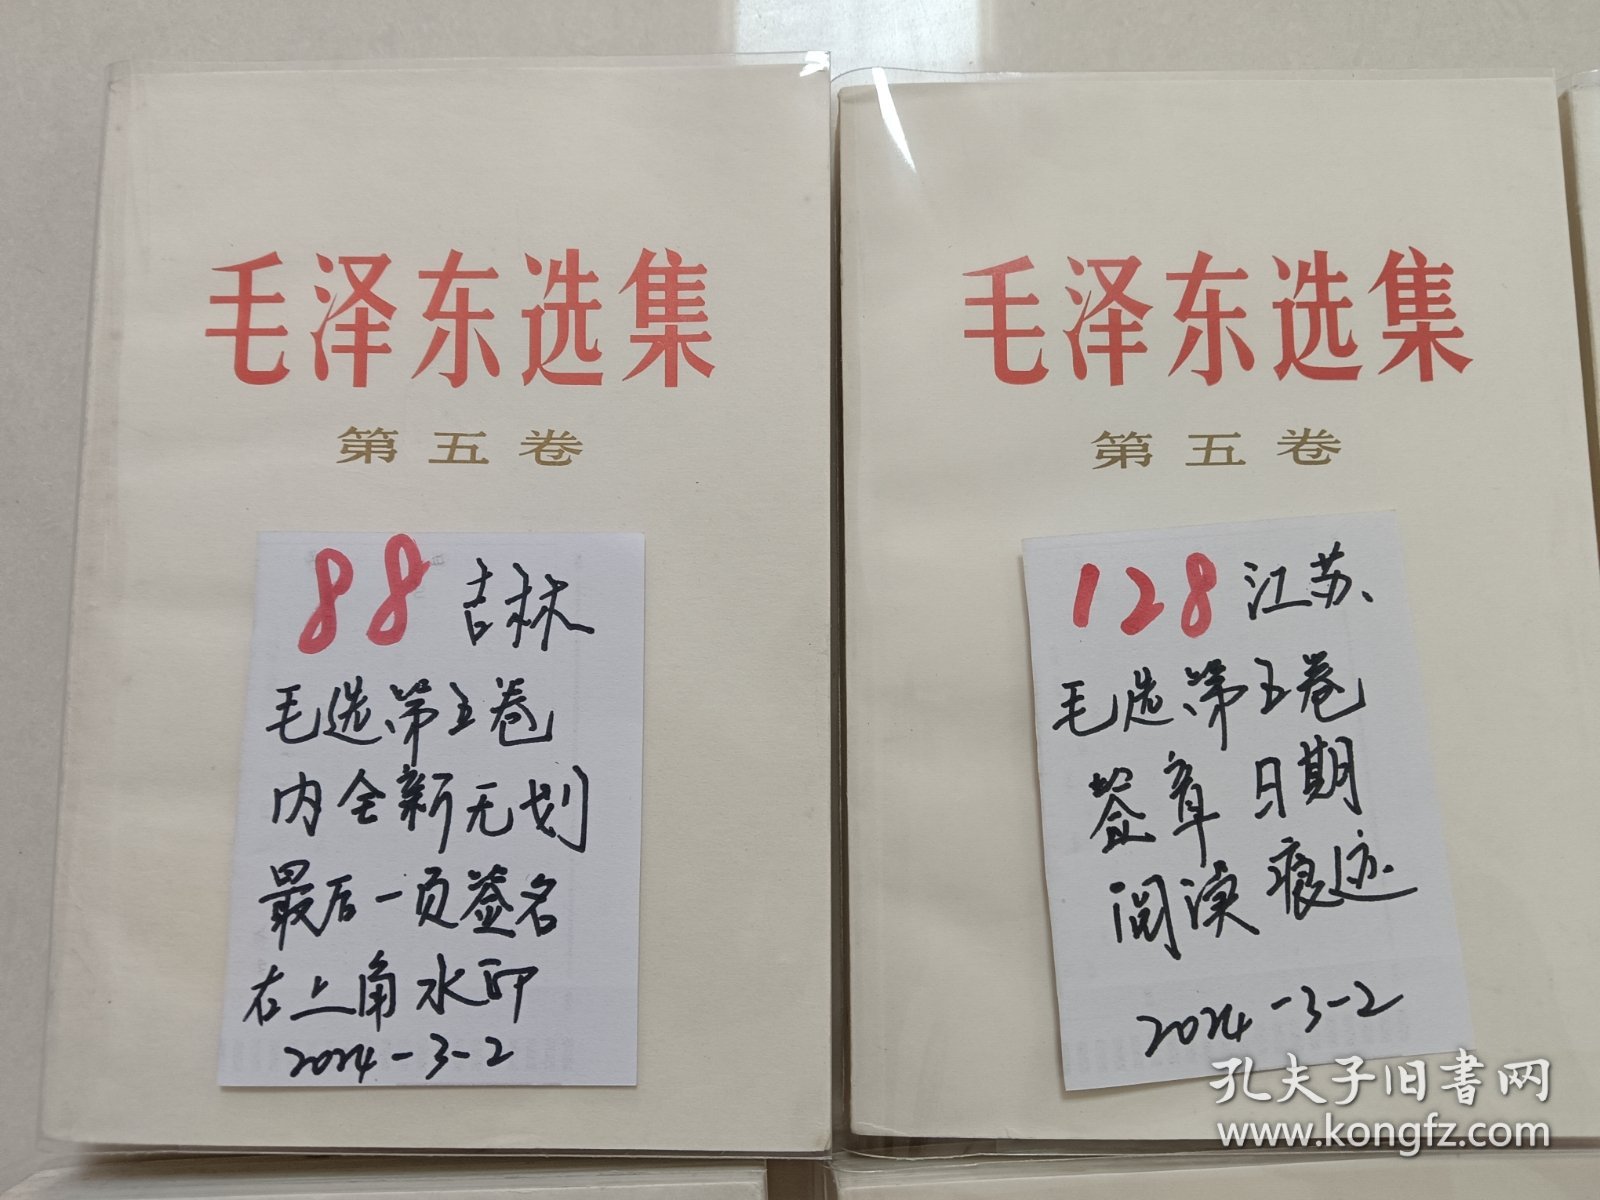 毛泽东选集
第五卷
88 吉林
毛选第五卷
内全新无划
最后一页签名
右上角水印
2024-3-2
毛泽东选集
第五卷
128 江苏、
毛选第五卷
签章 日期
阅读痕迹
2024-3-2
孔夫子旧书网
www.kongfz.com